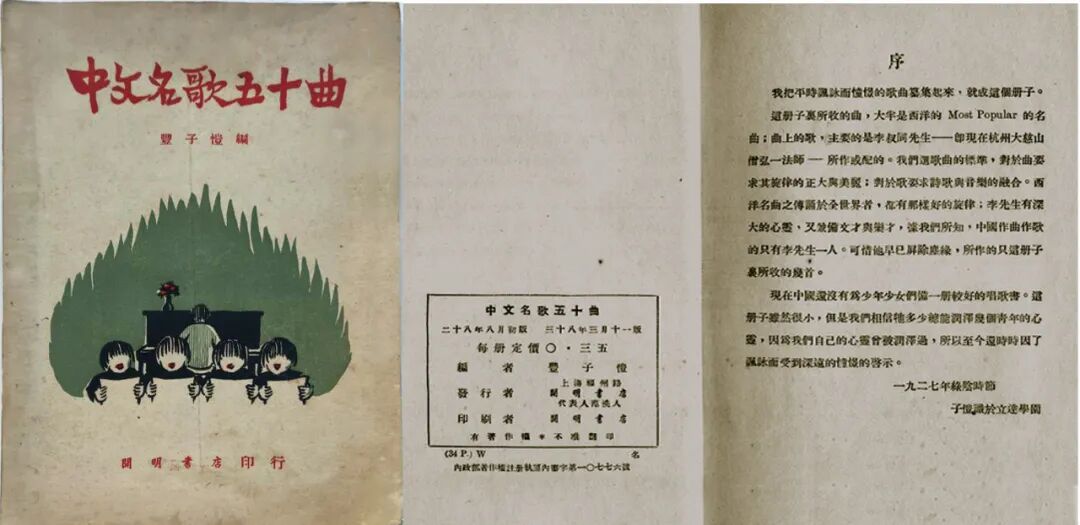 中文名歌五十曲
豐子愷編
開明書店印行
中文名歌五十曲
二十八年八月初版 三十八年三月十一版
每册定價〇·三五
編者 豐子愷
上海福州路
發行者 開明書店
代表人范洗人
印刷者 開明書店
有著作權＊不准翻印
(34 P.) W 名
內政部著作權註册執照內審字第一〇七七六號
序
我把平時諷詠而憧憬的歌曲纂集起來，就成這個册子。
這册子裏所收的曲，大半是西洋的 Most Popular 的名
曲；曲上的歌，主要的是李叔同先生——卽現在杭州大慈山
僧弘一法師——所作或配的。我們選歌曲的標準，對於曲要
求其旋律的正大與美麗；對於歌要求詩歌與音樂的融合。西
洋名曲之傳誦於全世界者，都有那樣好的旋律；李先生有深
大的心靈，又兼備文才與樂才，據我們所知，中國作曲作歌
的只有李先生一人。可惜他早已屏除塵緣，所作的只這册子
裏所收的幾首。
現在中國還沒有爲少年少女們備一册較好的唱歌書。這
册子雖然很小，但是我們相信牠多少總能潤澤幾個青年的心
靈，因爲我們自己的心靈曾被潤澤過，所以至今還時時因了
諷詠而受到深遠的憧憬的啓示。
一九二七年綠陰時節
子愷識於立達學園